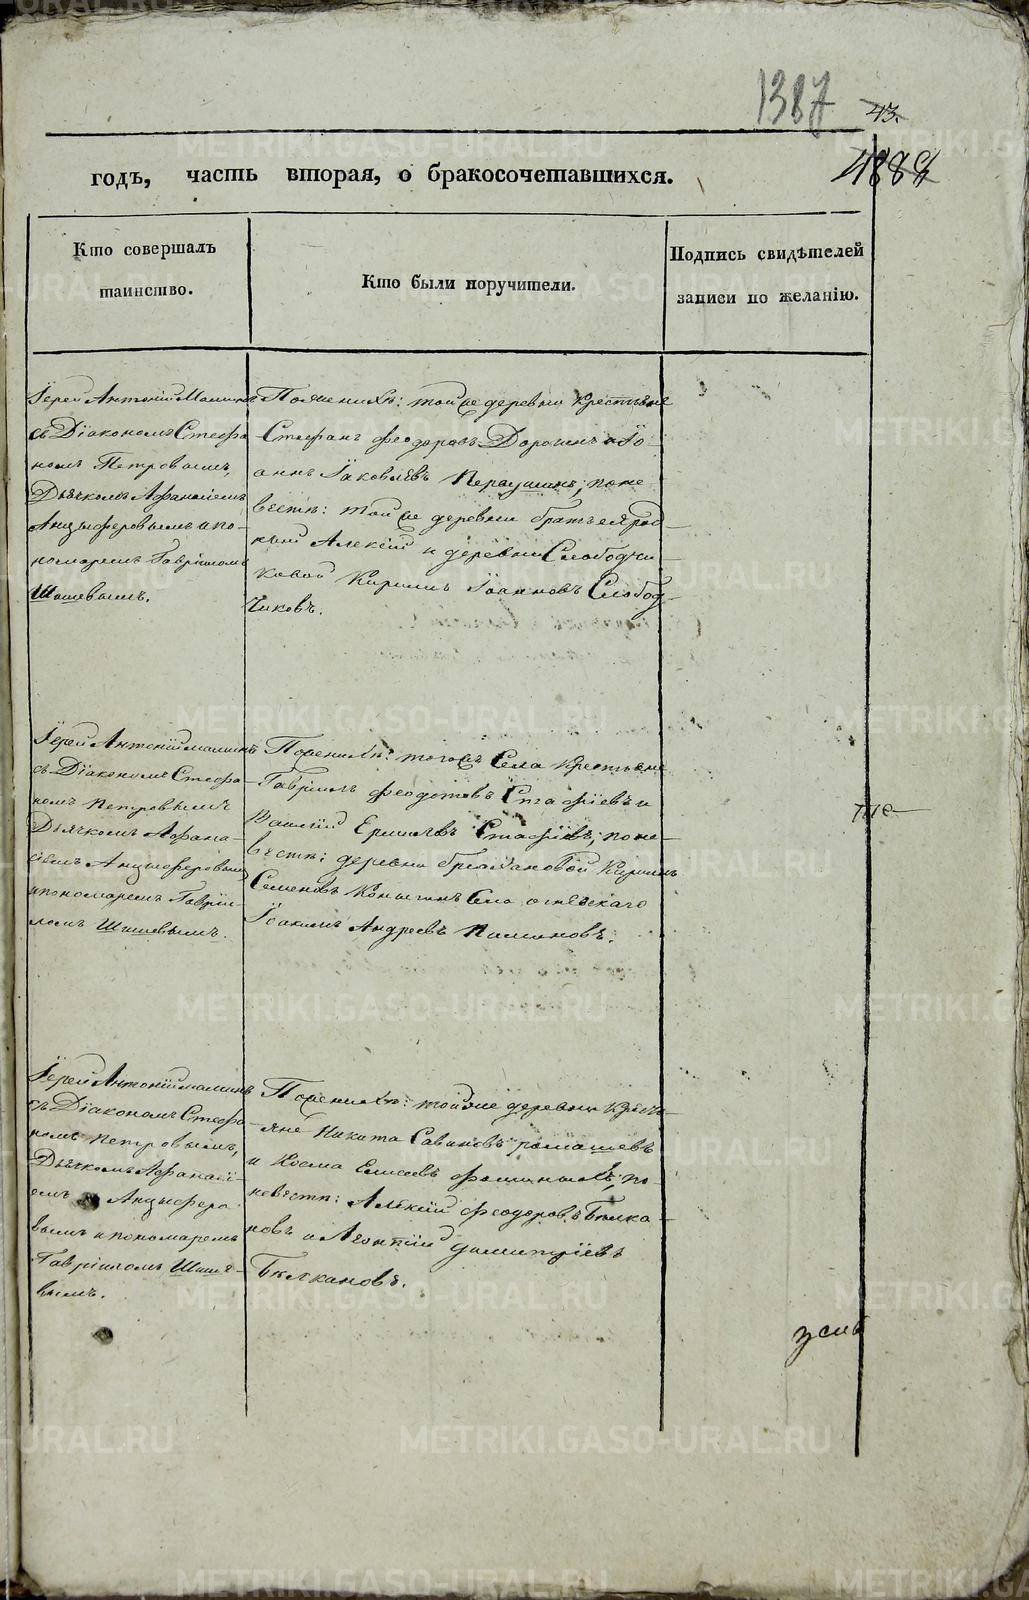 1387
43.
4888
годъ, часть вторая, о бракосочетавшихся.
Кто совершалъ
таинство.
Кто были поручители.
Подпись свидѣтелей
записи по желанію.
Іерей Антоній Малинъ
съ Діакономъ Стефа
номъ Петровымъ,
Дьячкомъ Афанасіемъ
Анцыферовымъ и по-
номаремъ Гавріиломъ
Шишевымъ.
По женихѣ: той же деревни крестьяне
Стефанъ Феодоровъ Дорошинъ и Іо
аннъ Іаковлевъ ; по не
вѣстѣ: той же деревни братъ ея род-
ный Алексій и деревни Слободчи
ковой Кириллъ Іоанновъ Слобод-
чиковъ.
Іерей Антоній Малинъ
съ Діакономъ Стефа-
номъ Петровымъ
Дьячкомъ Афана-
сіемъ Анцыферовымъ
и пономаремъ Гаврі-
ломъ Шишевымъ.
По женихѣ: того же Села крестьяне
Гавріилъ Феодотовъ и
Василій ; по не-
вѣстѣ: деревни Кириллъ
Семеновъ Села Огнѣвскаго
Іоакимъ Андреевъ
Іерей Антоній Малинъ
съ Діакономъ Стефа-
номъ Петровымъ,
Дьячкомъ Афанасі-
емъ Анцыферо
вымъ и пономаремъ
Гавріиломъ Шише-
вымъ.
По женихѣ: той же деревни кресть-
яне Никита Савиновъ Ромашевъ
и Косма Елисеевъ ; по
невѣстѣ: Алексій Феодоровъ Білка-
новъ и Леонтій Димитріевъ
Білкановъ.
METRIKI.GASO-URAL.RU